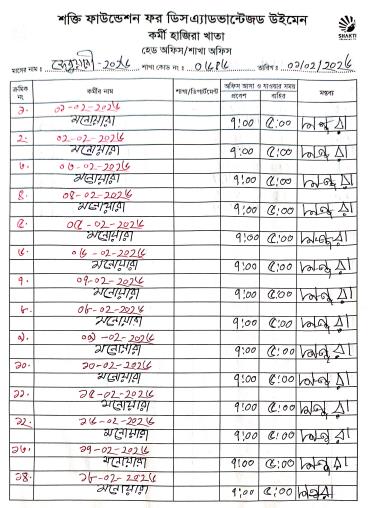 শক্তি ফাউন্ডেশন ফর ডিসএ্যাডভান্টেজড উইমেন
কর্মী হাজিরা খাতা
হেড অফিস/শাখা অফিস
SHAKTI
মাসের নাম : ফেব্রুয়ারী -২০২৬ শাখা কোড নং : তারিখ : ০১/০২/২০২৬
ক্রমিক নং কর্মীর নাম শাখা/ডিপার্টমেন্ট অফিস আসা ও যাওয়ার সময় মন্তব্য
প্রবেশ বাহির
১. ০১-০২-২০২৬
মনোয়ারা ৭:০০ ৫:০০
২. ০২-০২-২০২৬
মনোয়ারা ৭:০০ ৫:০০
৩. ০৩-০২-২০২৬
মনোয়ারা ৭:০০ ৫:০০
৪. ০৪-০২-২০২৬
মনোয়ারা ৭:০০ ৫:০০
৫. ০৫-০২-২০২৬
মনোয়ারা ৭:০০ ৫:০০
৬. ০৬-০২-২০২৬
মনোয়ারা ৭:০০ ৫:০০
৭. ০৭-০২-২০২৬
মনোয়ারা ৭:০০ ৫:০০
৮. ০৮-০২-২০২৬
মনোয়ারা ৭:০০ ৫:০০
৯. ০৯-০২-২০২৬
মনোয়ারা ৭:০০ ৫:০০
১০. ১০-০২-২০২৬
মনোয়ারা ৭:০০ ৫:০০
১১. ১৫-০২-২০২৬
মনোয়ারা ৭:০০ ৫:০০
১২. ১৬-০২-২০২৬
মনোয়ারা ৭:০০ ৫:০০
১৩. ১৭-০২-২০২৬
মনোয়ারা ৭:০০ ৫:০০
১৪. ১৮-০২-২০২৬
মনোয়ারা ৭:০০ ৫:০০